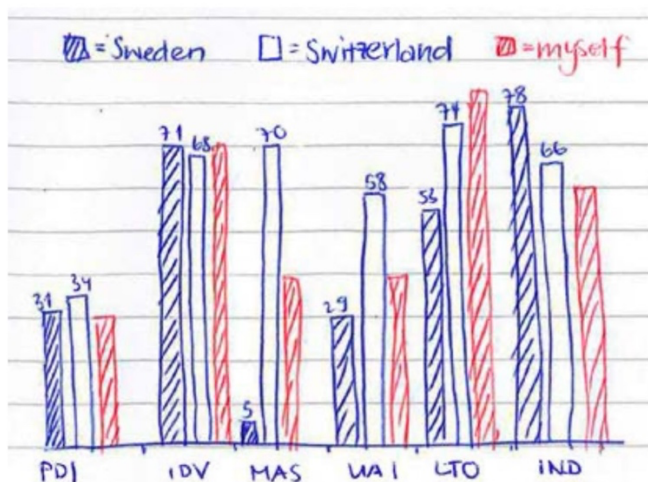 = Sweden = Switzerland = myself
31 34 71 68 5 70 29 58 53 74 78 66
PDI IDV MAS UAI LTO IND